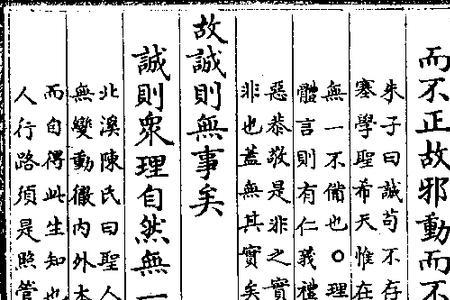 而不正故邪動而不
朱子曰誠苟不存
塞學聖希天惟在
無一不備也○理
體言則有仁義禮
惡恭敬是非之實
非也蓋無其實矣
故誠則無事矣
誠則衆理自然無一
北溪陳氏曰聖人
無變動徹內外本
而自得此生知也
人行路須是照管